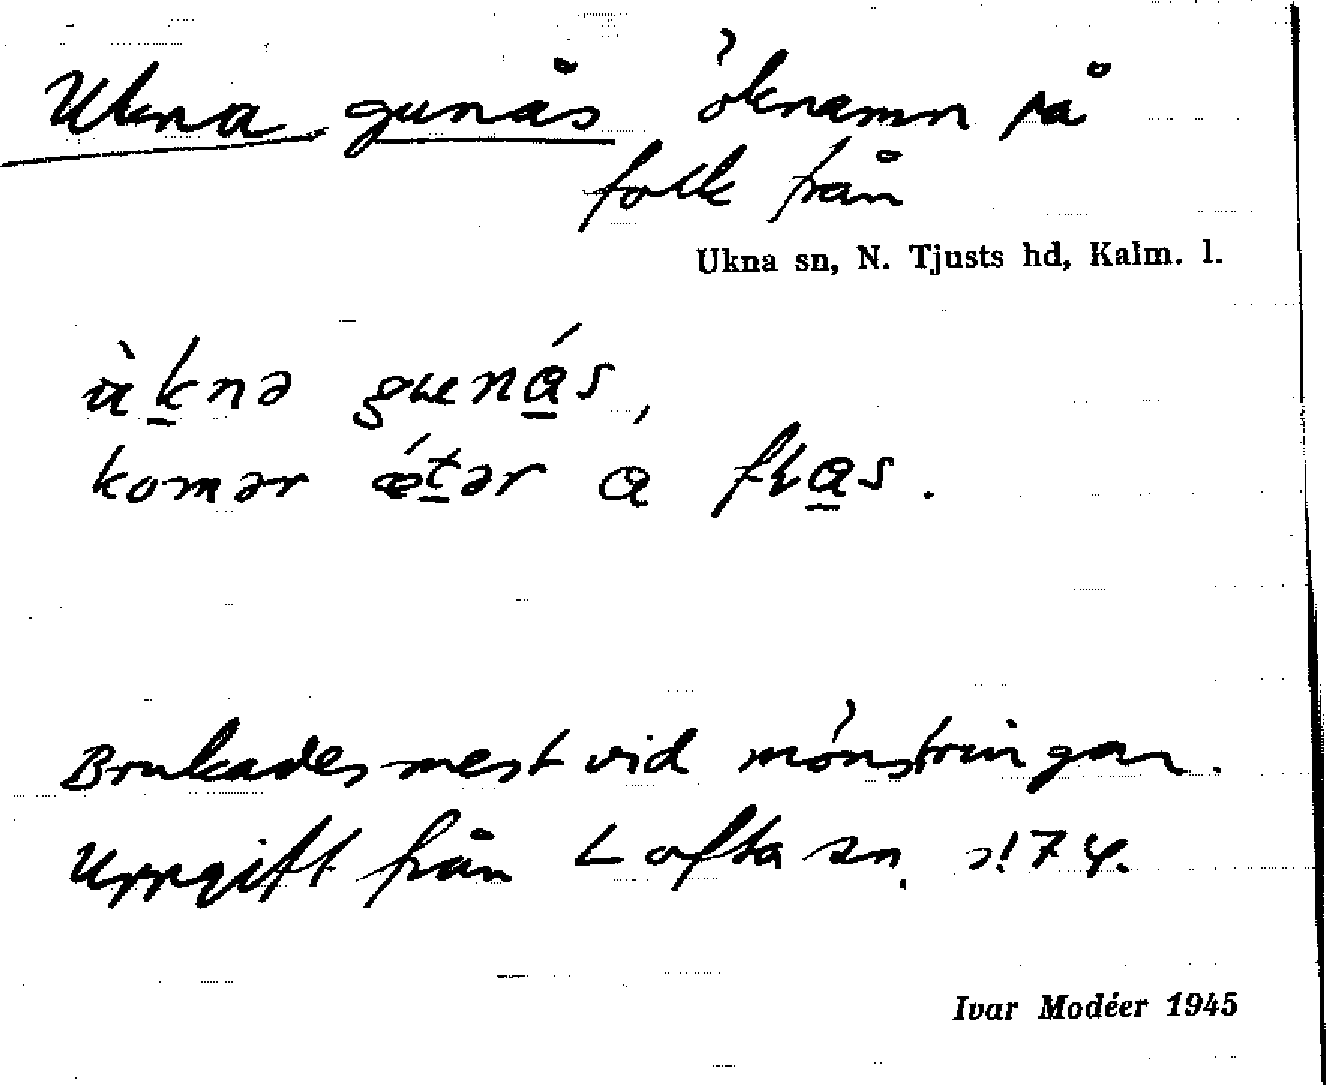 Ukna gunås öknamn på
folk från
Ukna sn, N. Tjusts hd, Kalm. l.
ùknə gʉnás,
komər ǽtər á flas.
Brukades mest vid mönstringar.
Uppgift från Lofta sn,
Ivar Modéer 1945